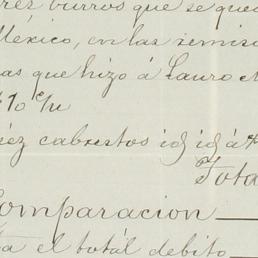 tres burros que se que
México, en las remis
as que hizo á Lauro
$70 c/u
iez cabrestos id id á
Tota
Comparacion
a el totál debito